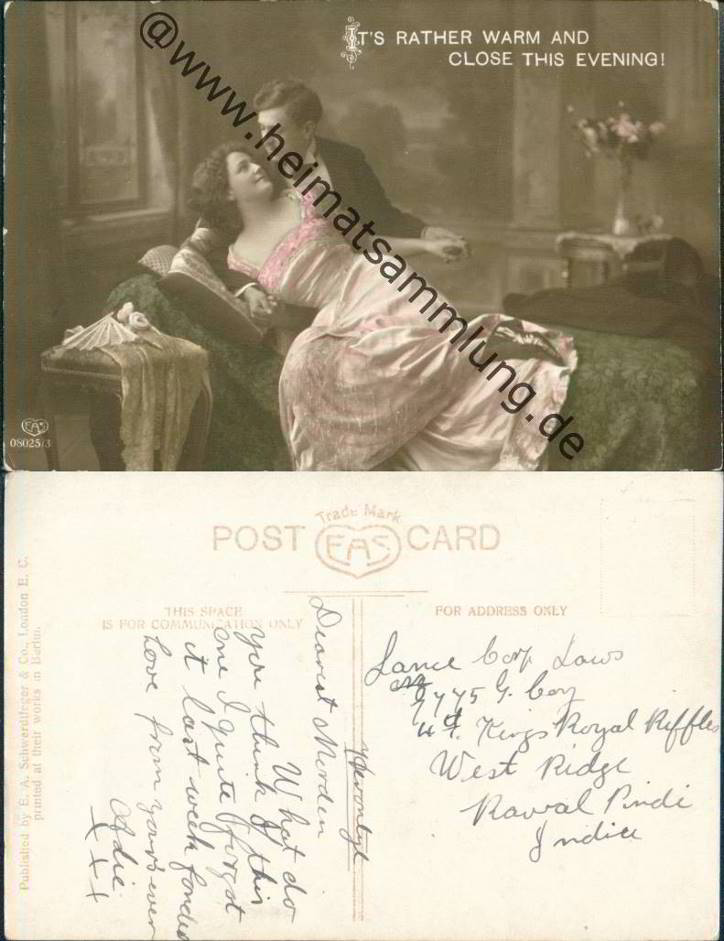 IT'S RATHER WARM AND
CLOSE THIS EVENING!
@www.heimatsammlung.de
EAS
08025/3
Trade Mark
POST EAS CARD
THIS SPACE
IS FOR COMMUNICATION ONLY
FOR ADDRESS ONLY
Published by E. A. Schwerdtfeger & Co., London E. C.
printed at their works in Berlin.
Dearest Morden
What do
you think of this
one I quite forgot
it last week fondest
Love from yours ever
Adie
X X X
Lance Corp Laws
9445 G. Coy
4th Kings Royal Riffles
West Ridge
Rawal Pindi
India